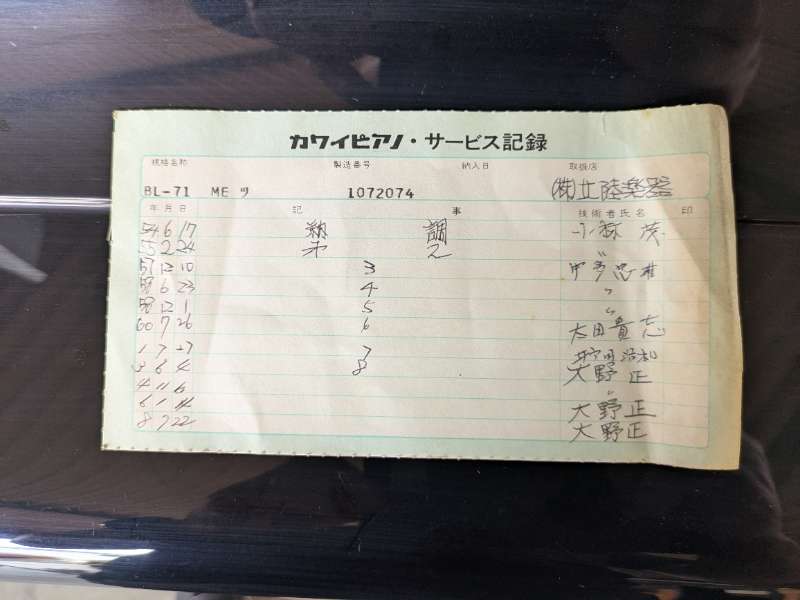 カワイピアノ・サービス記録
規格名称 製造番号 納入日 取扱店
BL-71 ME ツ 1072074 (株)北陸楽器
年月日 記事 技術者氏名 印
54 6 17 調 小林 茂
55 2 24 〃
57 12 10 3
58 6 23 4 〃
58 12 1 5 〃
60 7 26 6 太田貴志
1 7 27 7
3 6 4 8 大野正
4 11 6 〃
6 1 14 大野正
8 7 22 大野正